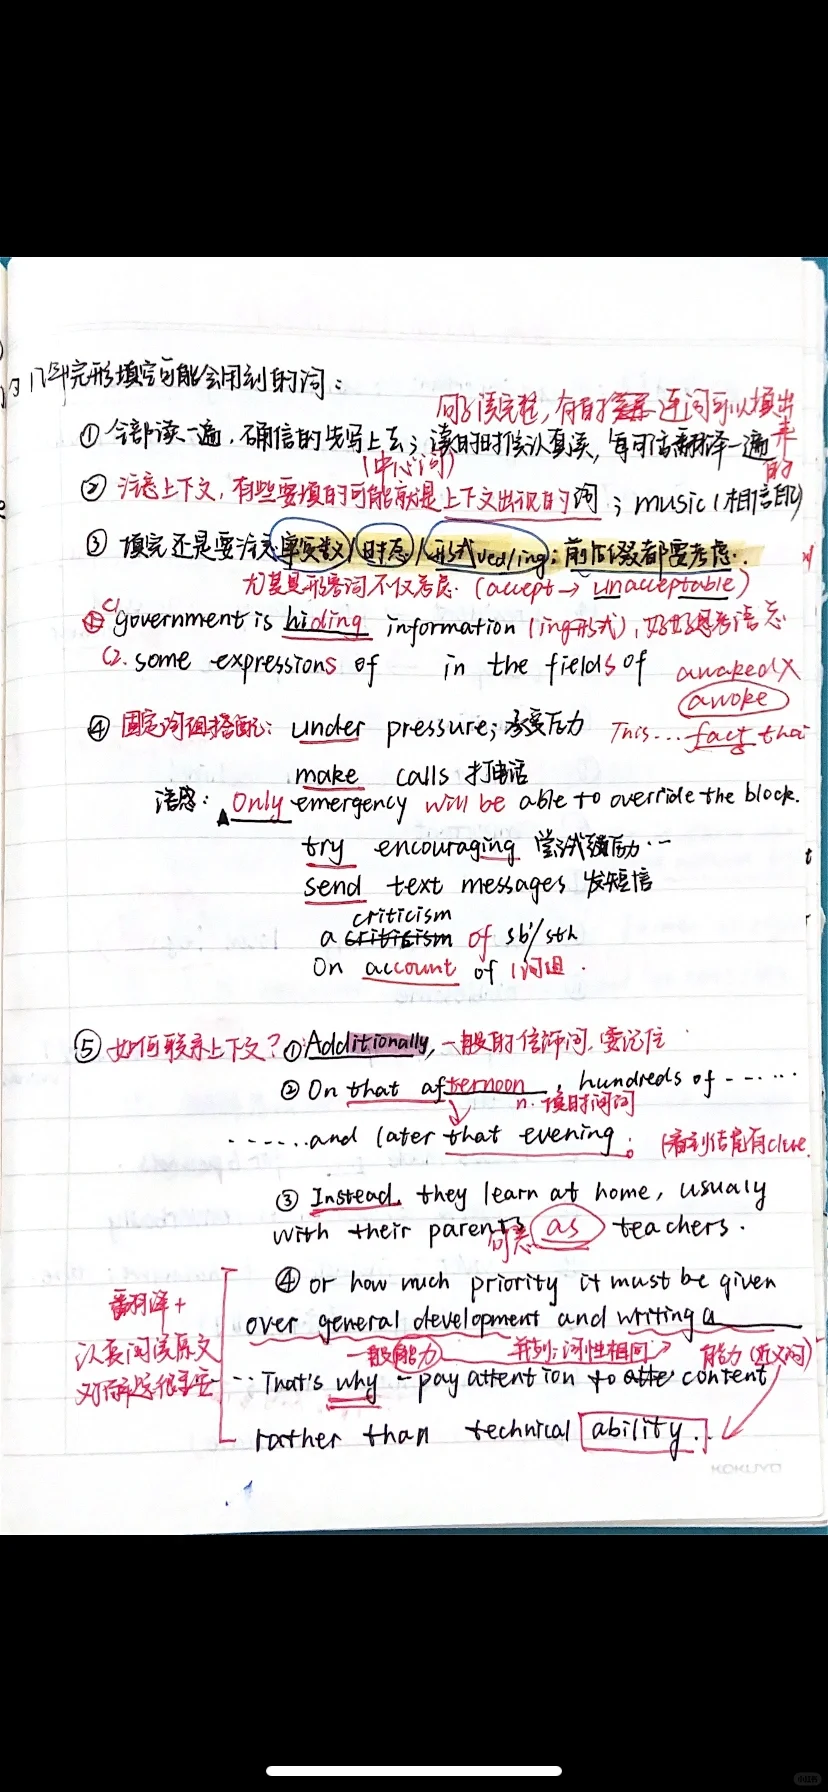 17年完形填空可能会用到的词：
句子读完整，有时候连词可以填出来的
① 全部读一遍，确信的先写上去；读的时候认真读，每句话翻译一遍
(中心词)
② 注意上下文，有些要填的可能就是上下文出现的词；music(相信自己)
③ 填完还是要注意单复数/时态/形式ved/ing；前后缀都要考虑.
尤其是形容词不仅考虑. (accept → unacceptable)
c1 government is hiding information (ing形式), 好好思考语态
c2. some expressions of in the fields of awaked X
awoke
④ 固定词组搭配： under pressure; 承受压力 This... fact that
make calls 打电话
语感： Only emergency will be able to override the block.
try encouraging 尝试鼓励…
send text messages 发短信
criticism
a criticism of sb/sth
On account of 1词组.
⑤ 如何联系上下文？① Additionally, 一般的信号词, 要记住
② On that afternoon, hundreds of ------
n. 填时间词
......and later that evening; (看到结尾有clue.
③ Instead, they learn at home, usualy
with their parents as teachers.
句意
④ or how much priority it must be given
翻译+
over general development and writing a
认真阅读原文
一般能力 并列：词性相同→ 能力(近义词)
对解题很重要
... That's why - pay attention to content
rather than technical ability.
KOKUYO